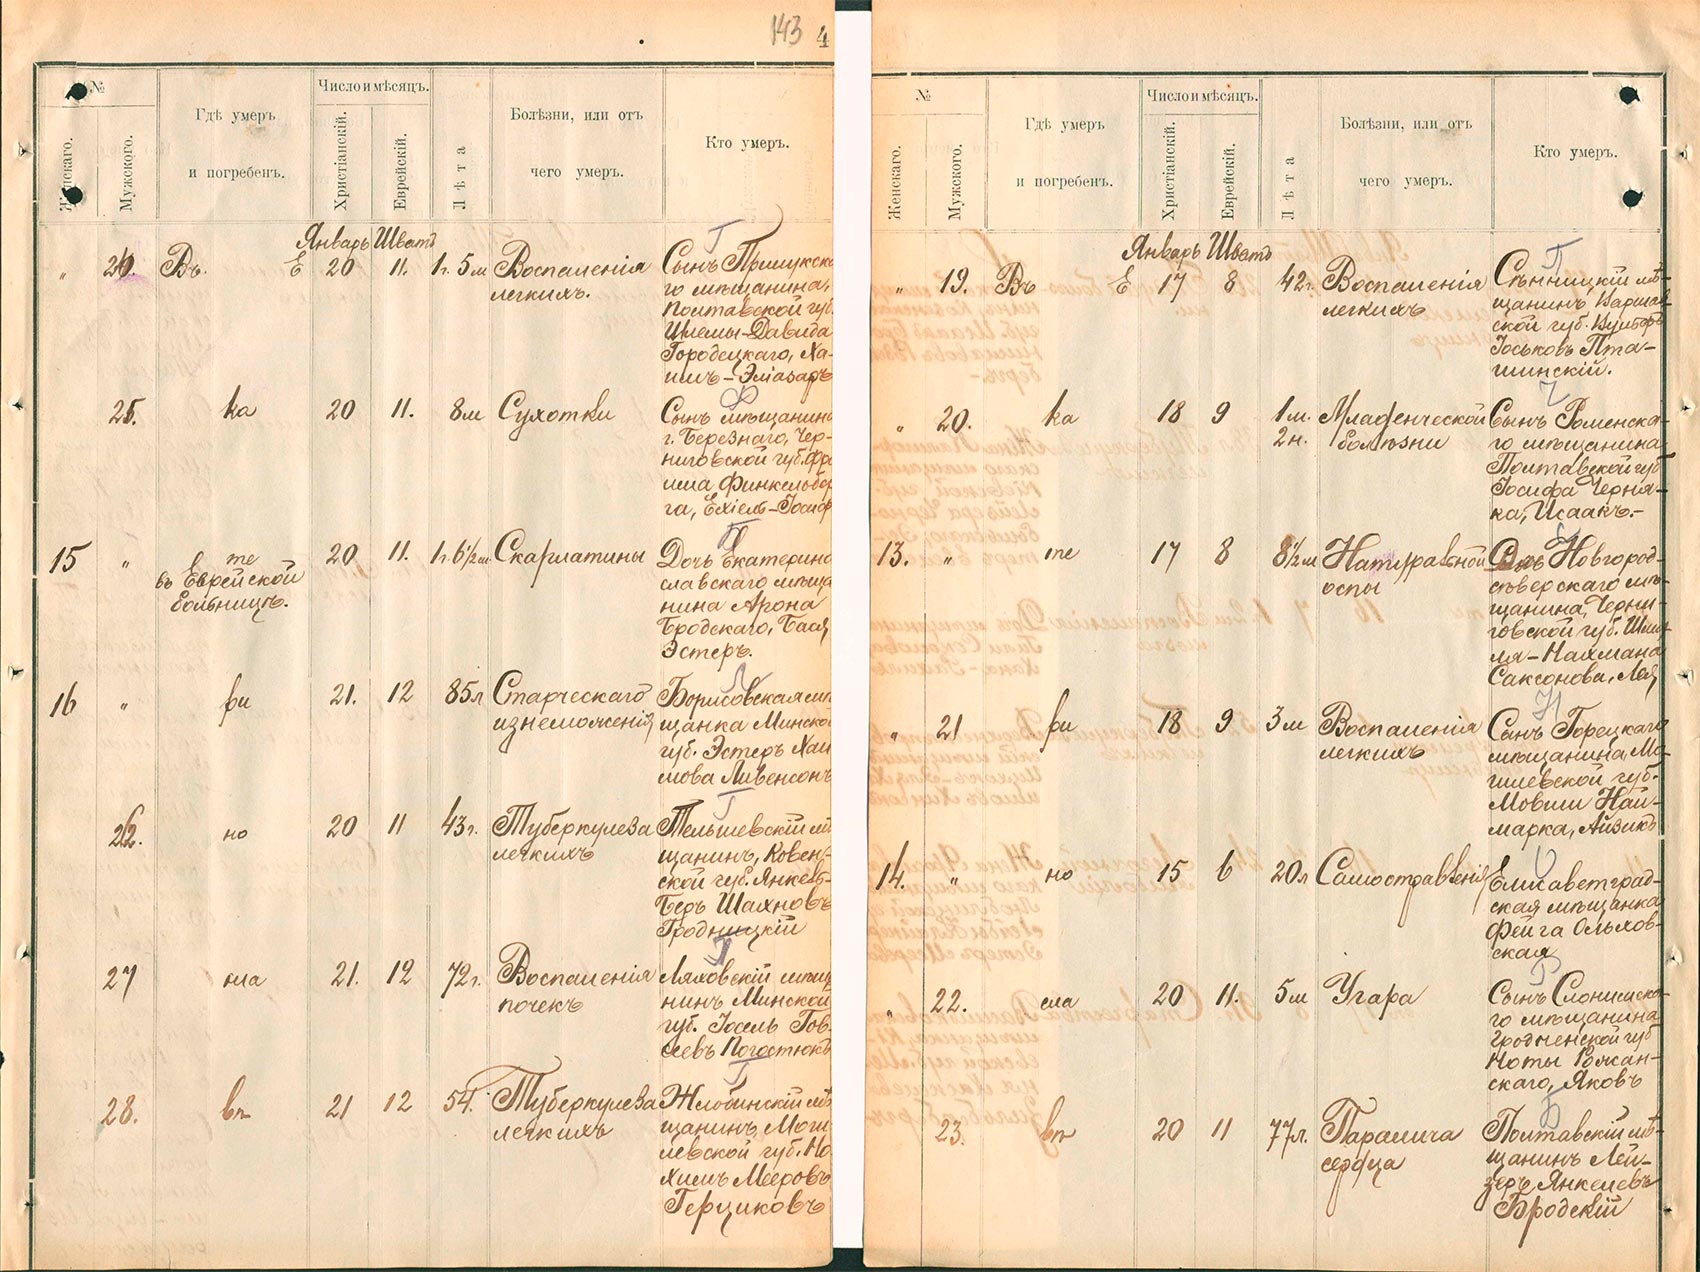 143 4
№
Женскаго.
Мужского.
Гдѣ умеръ
и погребенъ.
Число и мѣсяцъ.
Христіанскій.
Еврейскій.
Лѣта
Болѣзни, или отъ
чего умеръ.
Кто умеръ.
Январь Шватъ
" Въ. Е 20 11. 1г. 5м Воспаленія
легкихъ.
Сынъ
го мѣщанина,
Полтавской губ.
Шлемы-Давида
Городецкаго, Ха-
имъ-Эліазаръ
25. ка 20 11. 8м Сухотки
Сынъ мѣщанина
г. Березнаго, Чер-
ниговской губ.
Финкельбер
га, Ехіель-Іосиф
15 " те 20 11. 1г. 6½м. Скарлатины
въ Еврейской
больницѣ.
Дочь Екатерино
славскаго мѣща
нина Арона
Бродскаго, Бася
Эстеръ.
16 " ри 21. 12 85л Старческаго
изнеможенія
Борисовская мѣ
щанка Минской
губ. Эстеръ Хаи
мова Ливенсонъ
26. но 20 11 43г. Туберкулеза
легкихъ
Тельшевскій мѣ
щанинъ, Ковен-
ской губ. Янкель-
Беръ Шахновъ
Гродницкій
27 сла 21. 12 72г. Воспаленія
почекъ
Ляховскій мѣща
нинъ Минской
губ. Іосель Гов-
сеевъ Погостюкъ
28. въ 21 12 54. Туберкулеза
легкихъ
Жлобинскій мѣ
щанинъ, Моги
левской губ. Но
химъ Мееровъ
Герциковъ
№
Женскаго.
Мужского.
Гдѣ умеръ
и погребенъ.
Число и мѣсяцъ.
Христіанскій.
Еврейскій.
Лѣта
Болѣзни, или отъ
чего умеръ.
Кто умеръ.
Январь Шватъ
" 19. Въ Е 17 8 42г. Воспаленія
легкихъ
Сѣнницкій мѣ-
щанинъ, Варшав
ской губ.
Іоськовъ Пта-
шинскій.
" 20. ка 18 9 1м. Младенческой
2н. болѣзни
Сынъ Роменска-
го мѣщанина
Полтавской губ
Іосифа Черня-
ка, Исаакъ.-
13. " те 17 8 8½м Натуральной
оспы
Новгород-
сѣверскаго мѣ-
щанина, Черни-
говской губ. Шмуи
ля-Нахмана
Саксонова, Лея
" 21 ри 18 9 3м Воспаленія
легкихъ
Сынъ Горецкаго
мѣщанина, Мо-
гилевской губ.
Мовши Най-
марка, Айзикъ
14. " но 15 6 20л Самоотравленія
Елисаветград-
ская мѣщанка
Фейга Ольхов-
ская
" 22. сла 20 11. 5м Угара
Сынъ Слонимска-
го мѣщанина
Гродненской губ
Ноты Рожан-
скаго, Яковъ
23. въ 20 11 77л. Паралича
сердца
Полтавскій мѣ-
щанинъ Лей-
зеръ Янкелевъ
Бродскій